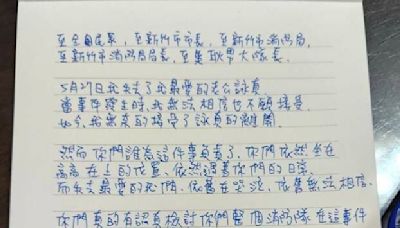 至全國民眾,至新竹市市長,至新竹市消防局,
至新竹市消防局局長,至隊大隊長.
5月27日我失去了我最愛的老公詠真
當事件發生時,我無法相信也不願接受
如今,我無奈的接受了詠真的離開
然而你們誰為這件事負責了,你們依然坐在
高高在上的位置,依然過著你們的日常,
而失去最愛的我們,依舊在哭泣,依舊無法相信.
你們真的有認真檢討你們整個消防隊在這事件